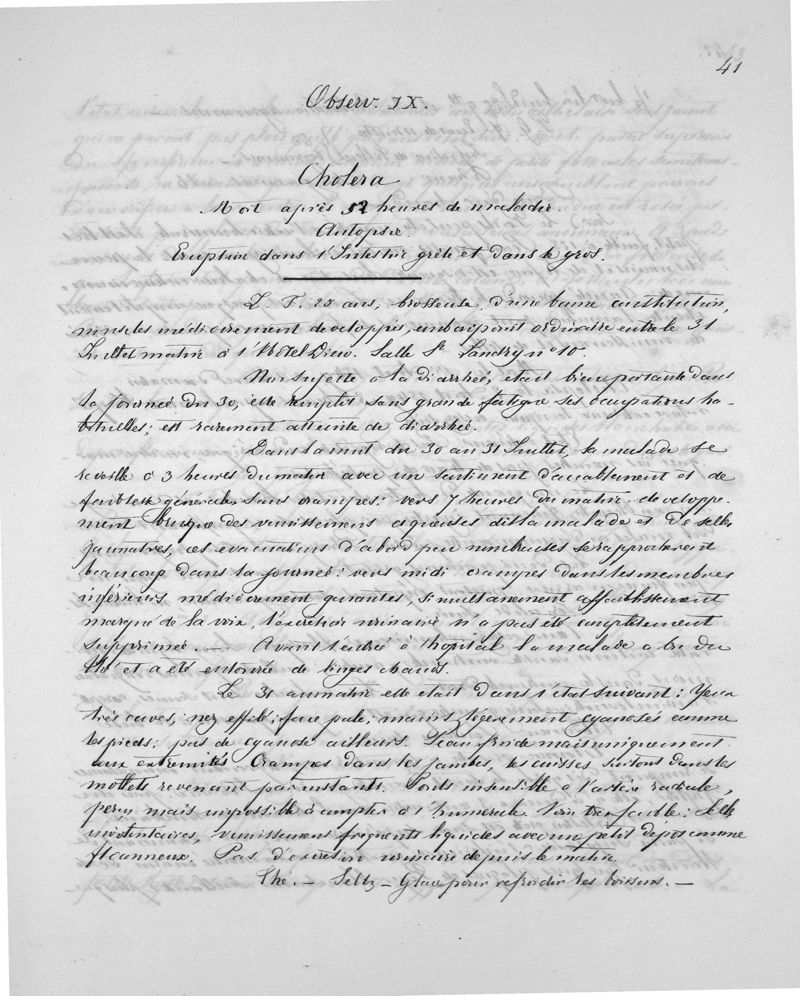 41
Observ. IX.
Cholera
Mort après 52 heures de maladie.
Autopsie.
Eruption dans l'Intestin grêle et dans le gros.
L. F. 20 ans, brosseuse, d'une bonne constitution,
muscles médiocrement developpés, embonpoint ordinaire entre le 31
Juillet matin à l'Hôtel Dieu. Salle St Landry no 10.
Non Sujette à la diarrhée, était bien portante dans
la journée du 30, elle remplit sans grande fatigue ses occupations ha-
bituelles; est rarement atteinte de diarrhée.
Dans la nuit du 30 au 31 Juillet, la malade se
reveille à 3 heures du matin avec un sentiment d'accablement et de
faiblesse générale, sans crampes: vers 7 heures du matin developpe-
ment brusque des vomissemens aqueuses dit la malade et de selles
jaunatres, ces evacuations d'abord peu nombreuses se rapprocherent
beaucoup dans la journée: vers midi crampes dans les membres
inférieurs médiocrement génantes, simultanément affaiblissement
marqué de la voix, l'excretion urinaire n'a pas été completement
supprimée. — Avant l'entrée à l'hôpital la malade a bu du
thé et a été entourée de linges chauds.
Le 31 au matin elle était dans l'état suivant: Yeux
très caves, nez effilé; face pale; mains légèrement cyanosées comme
les pieds; pas de cyanose ailleurs. Peau froide mais uniquement
aux extremités Crampes dans les jambes, les cuisses surtout dans les
mollets revenant par instants. Pouls insensible à l'artère radiale,
perçu mais impossible à compter à l'humerale. Voix tres faible: Selles
involontaires, vomissemens frequents liquides avec un petit depos comme
floconneux. Pas d'excretion urinaire depuis le matin
Thé. — Seltz — Glace pour refroidir les boissons. —